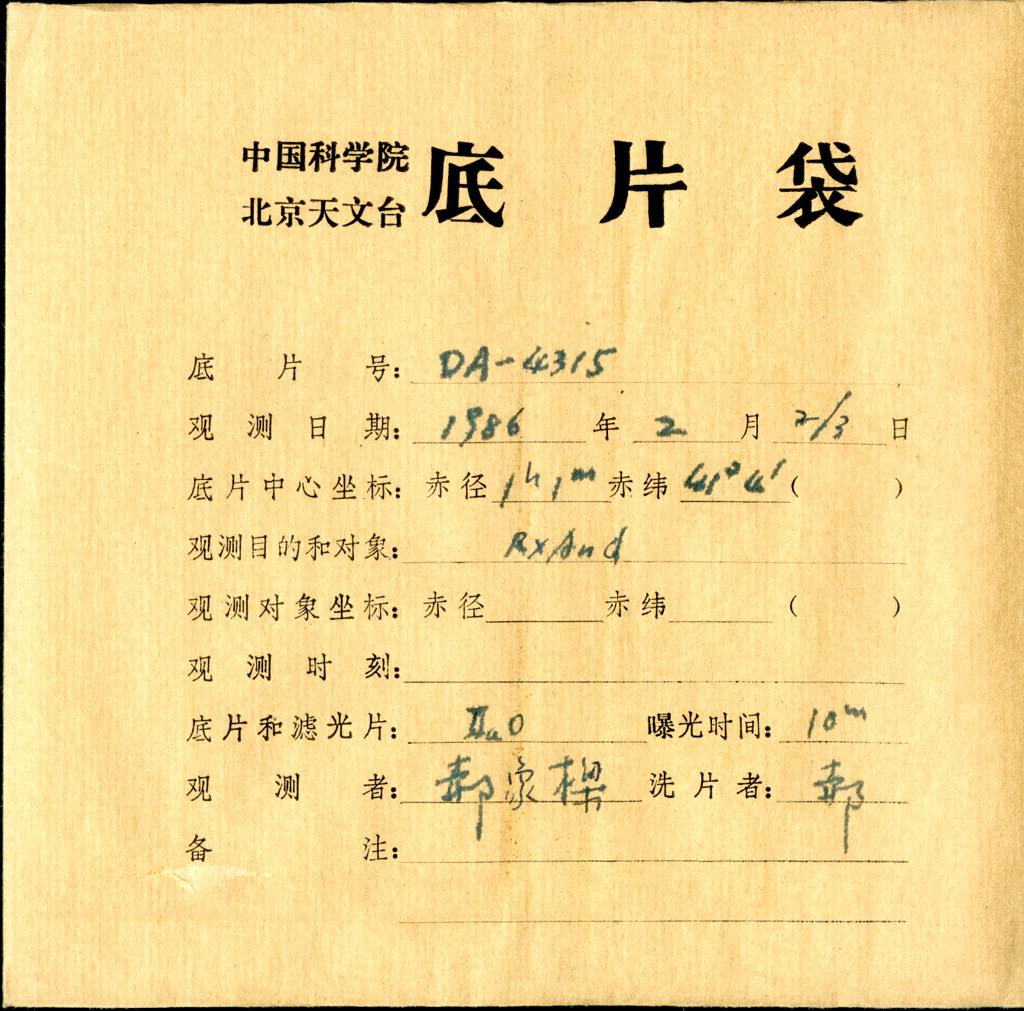 中国科学院
北京天文台
底片袋
底片号: DA-4315
观测日期: 1986年2月2/3日
底片中心坐标: 赤径1h1m赤纬41°4′( )
观测目的和对象: RxAnd
观测对象坐标: 赤径 赤纬 ( )
观测时刻:
底片和滤光片: IIaO 曝光时间: 10m
观测者: 郝象樑 洗片者: 郝
备注: